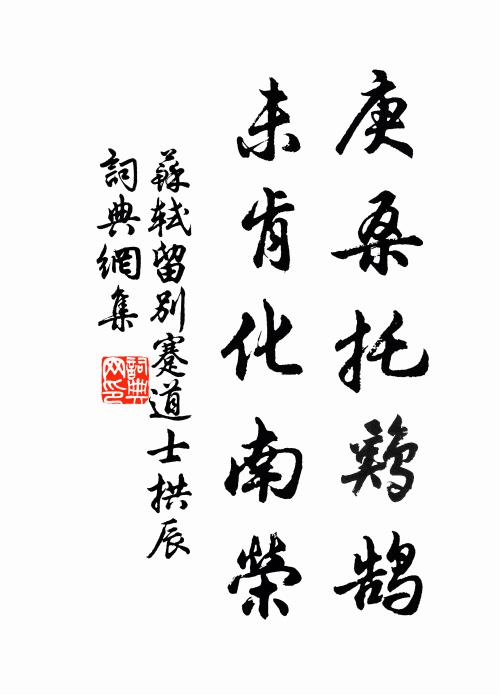 庚桑托鷄鵠
未肯化南榮
蘇軾留別蹇道士拱辰
詞典網集
詞典网印